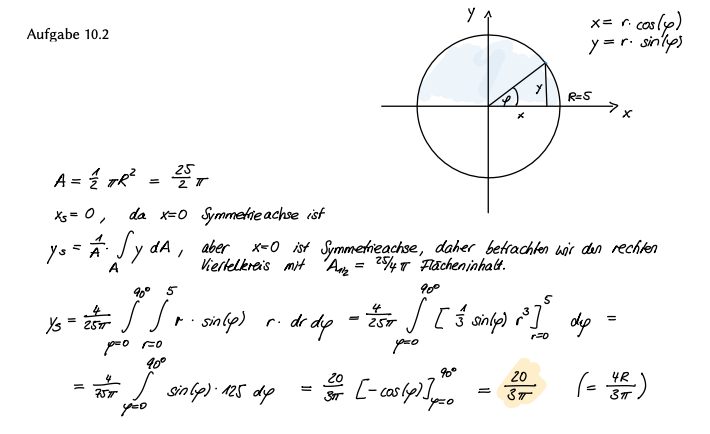 Aufgabe 10.2
y
x = r · cos(φ)
y = r · sin(φ)
φ
y
x
R=5
x
A = 1/2 πR² = 25/2 π
x_S = 0, da x=0 Symmetrieachse ist
y_S = 1/A · ∫_A y dA, aber x=0 ist Symmetrieachse, daher betrachten wir den rechten
Viertelkreis mit A_{1/2} = 25/4 π Flächeninhalt.
y_S = 4/(25π) ∫_{φ=0}^{90°} ∫_{r=0}^{5} r · sin(φ) r · dr dφ = 4/(25π) ∫_{φ=0}^{90°} [1/3 sin(φ) r³]_{r=0}^{5} dφ =
= 4/(75π) ∫_{φ=0}^{90°} sin(φ) · 125 dφ = 20/(3π) [-cos(φ)]_{φ=0}^{90°} = 20/(3π) (= 4R/(3π))